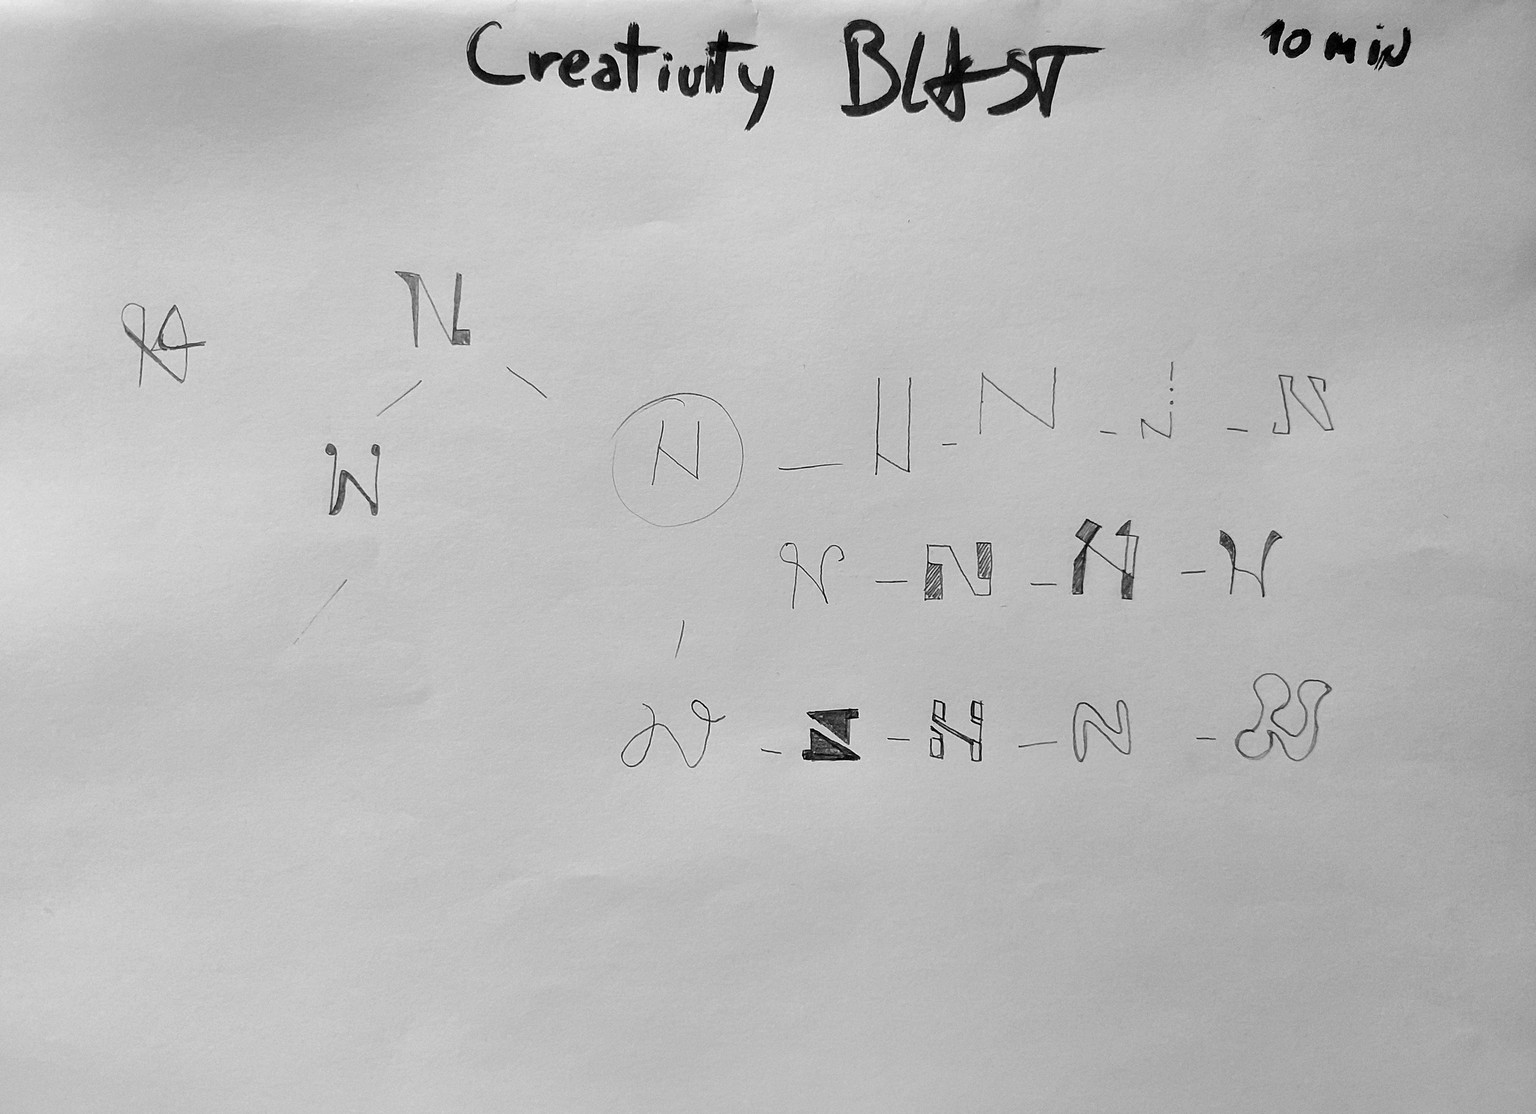 Creativity BLAST 10 min
N
N
N N N N N
N N N N
N N N N N